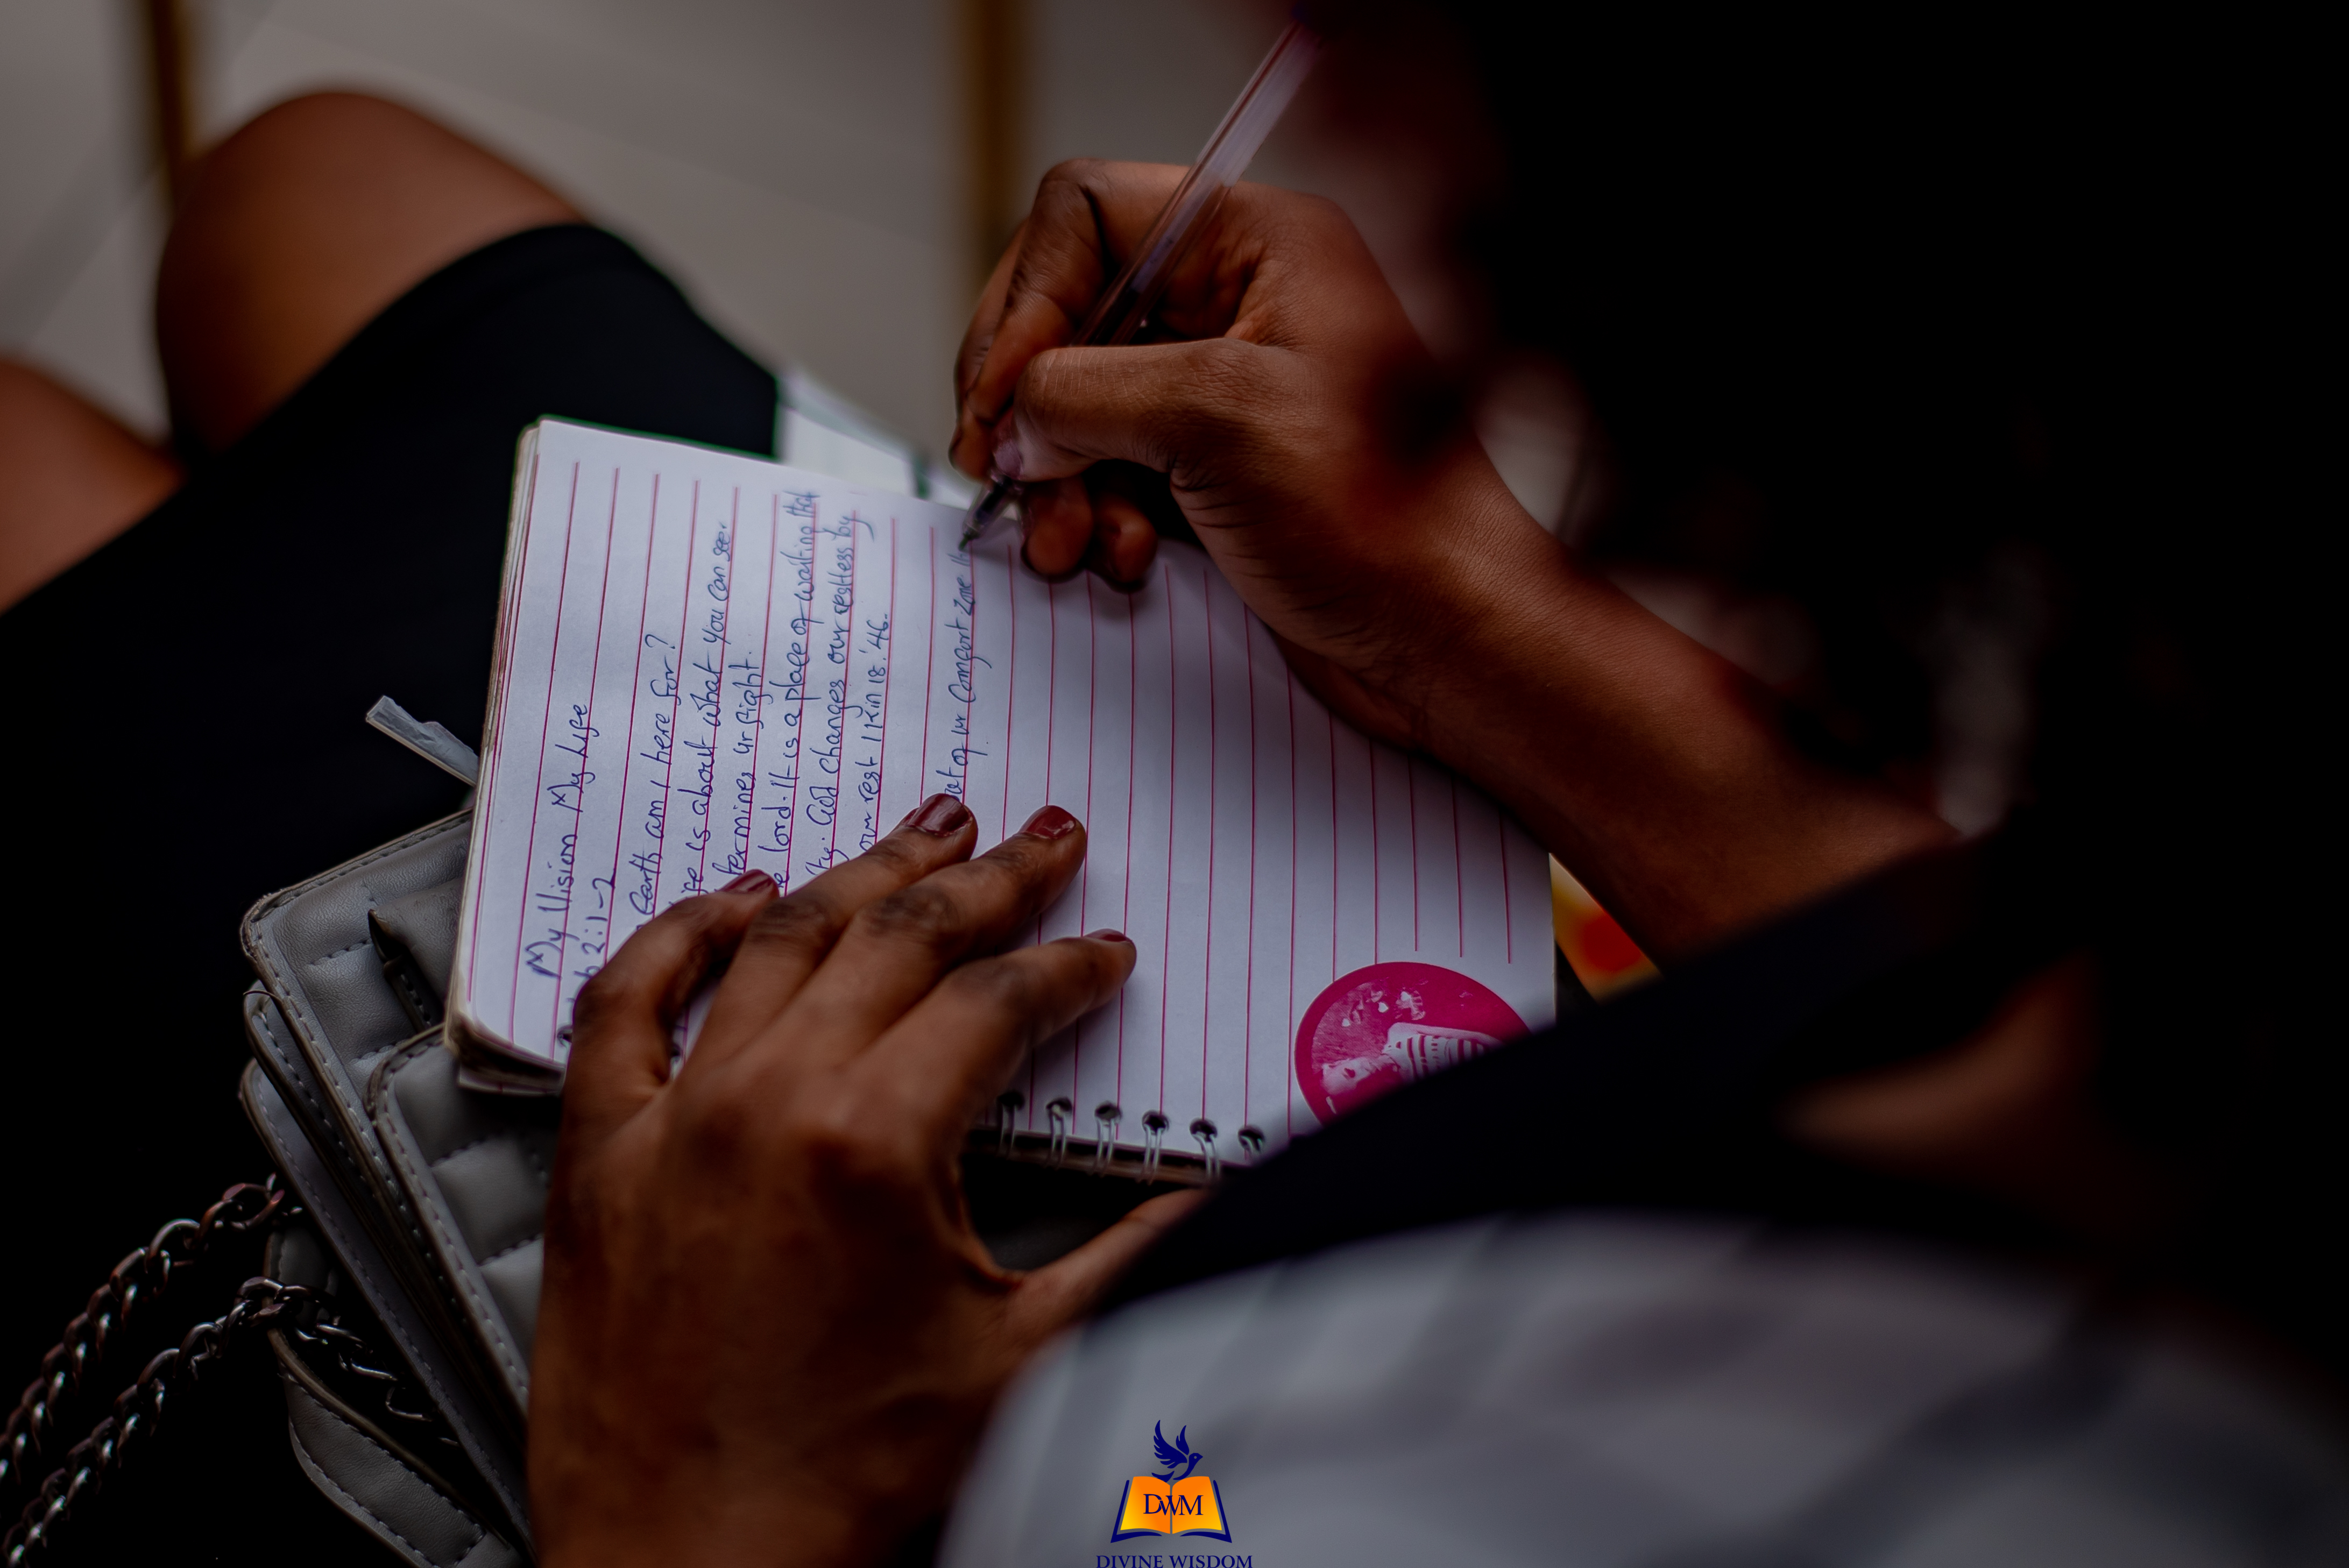 My Vision My Life
2:1-2
Earth am I here for?
is about what you can see.
termines ur sight.
lord. It is a place of waiting that
God changes our restless by
our rest 1 Kin 18:46.
out of ur Comfort zone
DWM
DIVINE WISDOM